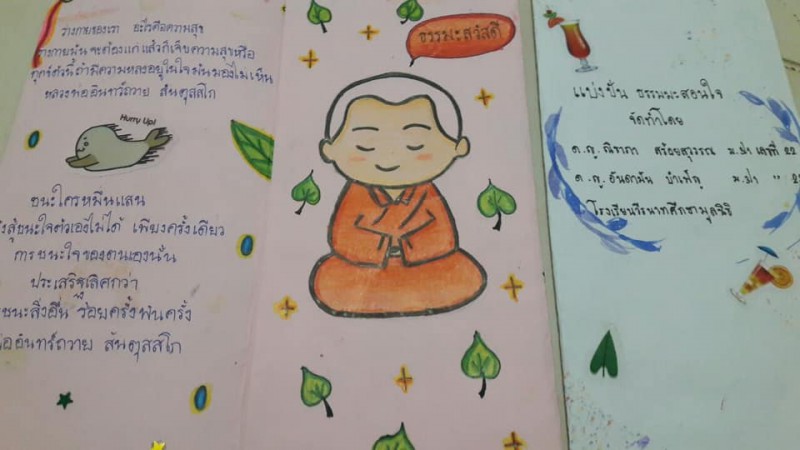 ร่างกายของเรา อะไรคือความสุข
ร่างกายนั้นจะต้องแก่ แล้วก็เจ็บความสุขหรือ
ทุกข์ตัวนี้ ถ้ามีความหลงอยู่ในใจมันมองไม่เห็น
หลวงพ่ออินทร์ถวาย สันตุสสโก
Hurry Up!
ชนะใครหมื่นแสน
สู้ชนะใจตัวเองไม่ได้ เพียงครั้งเดียว
การชนะใจของตนเองนั้น
ประเสริฐเลิศกว่า
ชนะสิ่งอื่น ร้อยครั้งพันครั้ง
อินทร์ถวาย สันตุสสโก
ธรรมะสวัสดี
แบ่งปัน ธรรมนะสอนใจ
จัดทำโดย
ด.ญ. ณิชาภา สร้อยสุวรรณ ม.๑/๑ เลขที่ 22
ด.ญ. อันดามัน ม.๑/๑ "